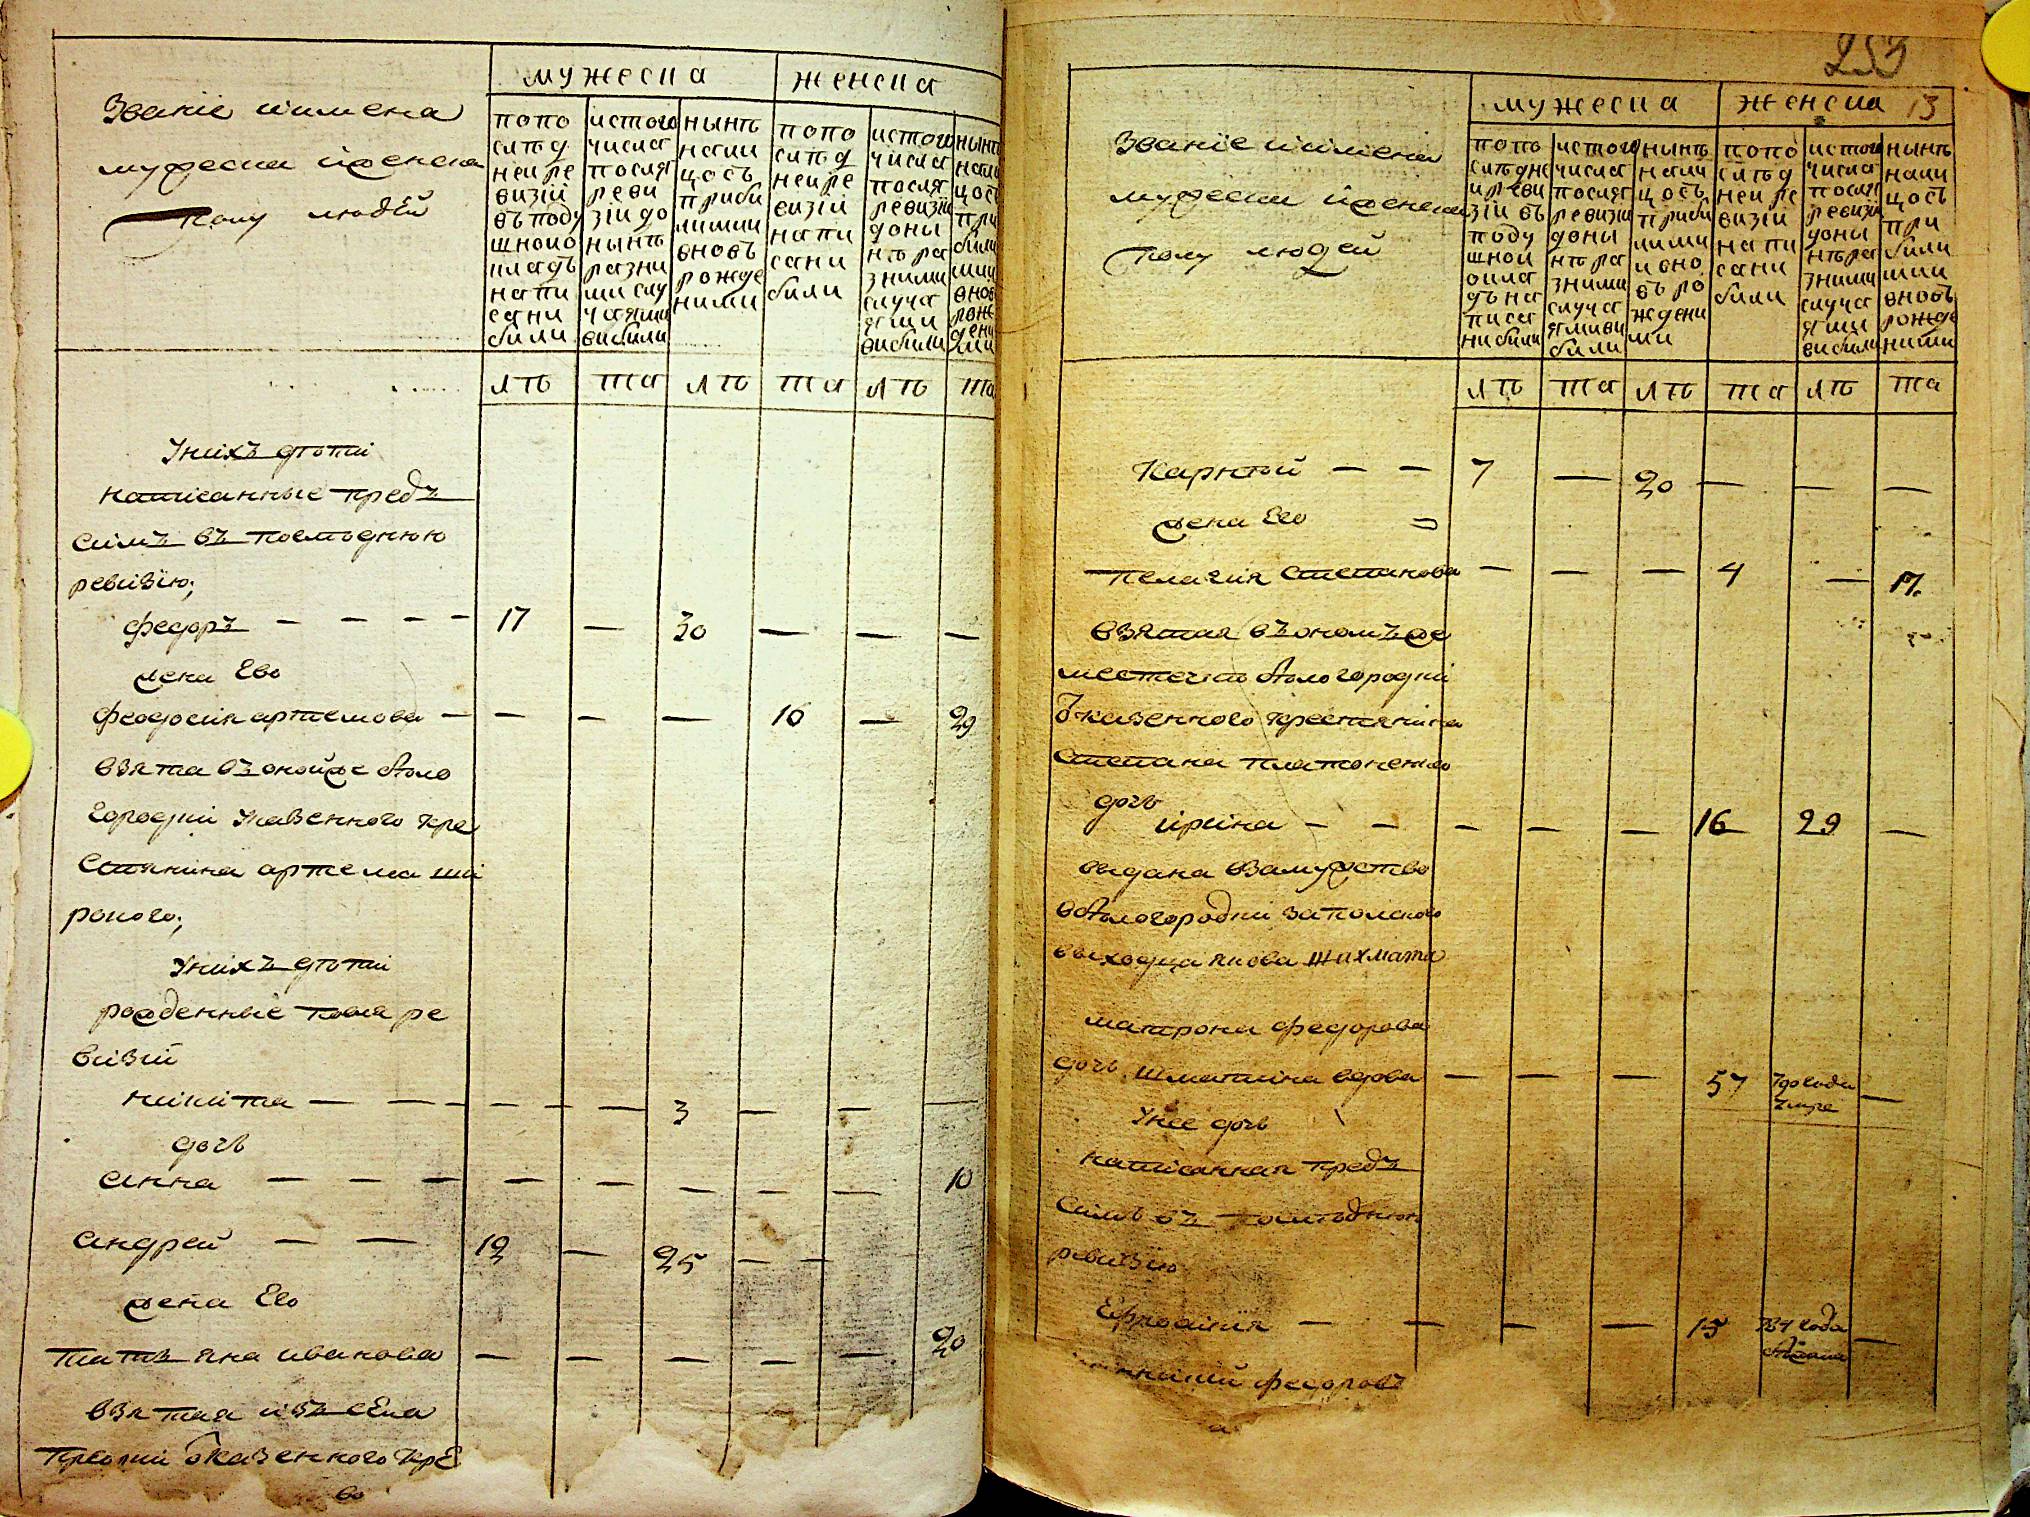 Званіе иимена
мужеска иженска
полу людей
мужеска
женска
попо
слѣд
неи ре
визіи
въ поду
шной о
кладъ
напи
сани
били
истого
числа
послѣ
реви
зіи до
нынѣ
разни
ми слу
чаями
вибили
нынѣ
нали
цось
приби
лими
вновь
рожде
ними
попо
слѣд
неи ре
визіи
напи
сани
били
истого
числа
послѣ
ревизіи
дони
нѣ ра
зними
случа
ями
вибили
нынѣ
нали
цось
при
били
ми
внов
рож
дени
ми
лѣ та лѣ та лѣ та
Унихъ дѣти
написанные предъ
симъ въ последнюю
ревизію;
федоръ — — — — 17 — 30 — — —
жена Ево
феодосия артемова — — — — 16 — 29
взята въ оной же Бѣло
городки указенного кре
стянина артема ши
рокого;
Унихъ дѣти
рожденные после ре
визии
никита — — — — — — 3 — — —
дочь
анна — — — — — — — — — 10
андрей — — 12 — 25 — —
жена Его
татьяна иванова — — — — — 20
взятая изъ села
казенного кре
253
13
Званіе иимена
мужеска иженска
полу людей
мужеска
женска
попо
слѣдне
и реви
зіи въ
поду
шной
окла
дъ на
писа
ни били
истого
числа
послѣ
ревизіи
дони
нѣ ра
зними
случа
ями ви
били
нынѣ
нали
цось
приби
лими
и вно
въ ро
ждени
ми
попо
слѣд
неи ре
визіи
напи
сани
били
истого
числа
послѣ
ревизіи
дони
нѣ ра
зними
случа
ями
вибили
нынѣ
нали
цось
при
били
ми
вновь
рожде
ними
лѣ та лѣ та лѣ та
Карпъ — — 7 — 20 — — —
жена Его
пелагия степанова — — — 4 — 17
взятая въ ономъ же
местечкѣ Бѣлогородки
Указенного крестянина
степана платоненко
дочь
ирина — — — — — 16 29 —
выдана взамужство
вБѣлогородки заполского
выходца якова шахмата
матрона федорова
дочь вдова — — — 57 790 года умре —
Унее дочь
написанная предъ
симъ въ последнюю
ревизию
Ефросиния — — — — 15 года —
федоровъ